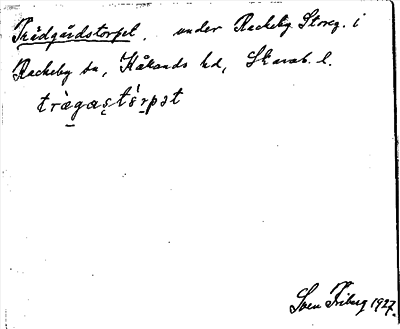 Trädgårdstorpet. under Rackeby Storeg. i
Rackeby sn, Kållands hd, Skarab. l.
trägastörpət
Sven Friberg 1927.